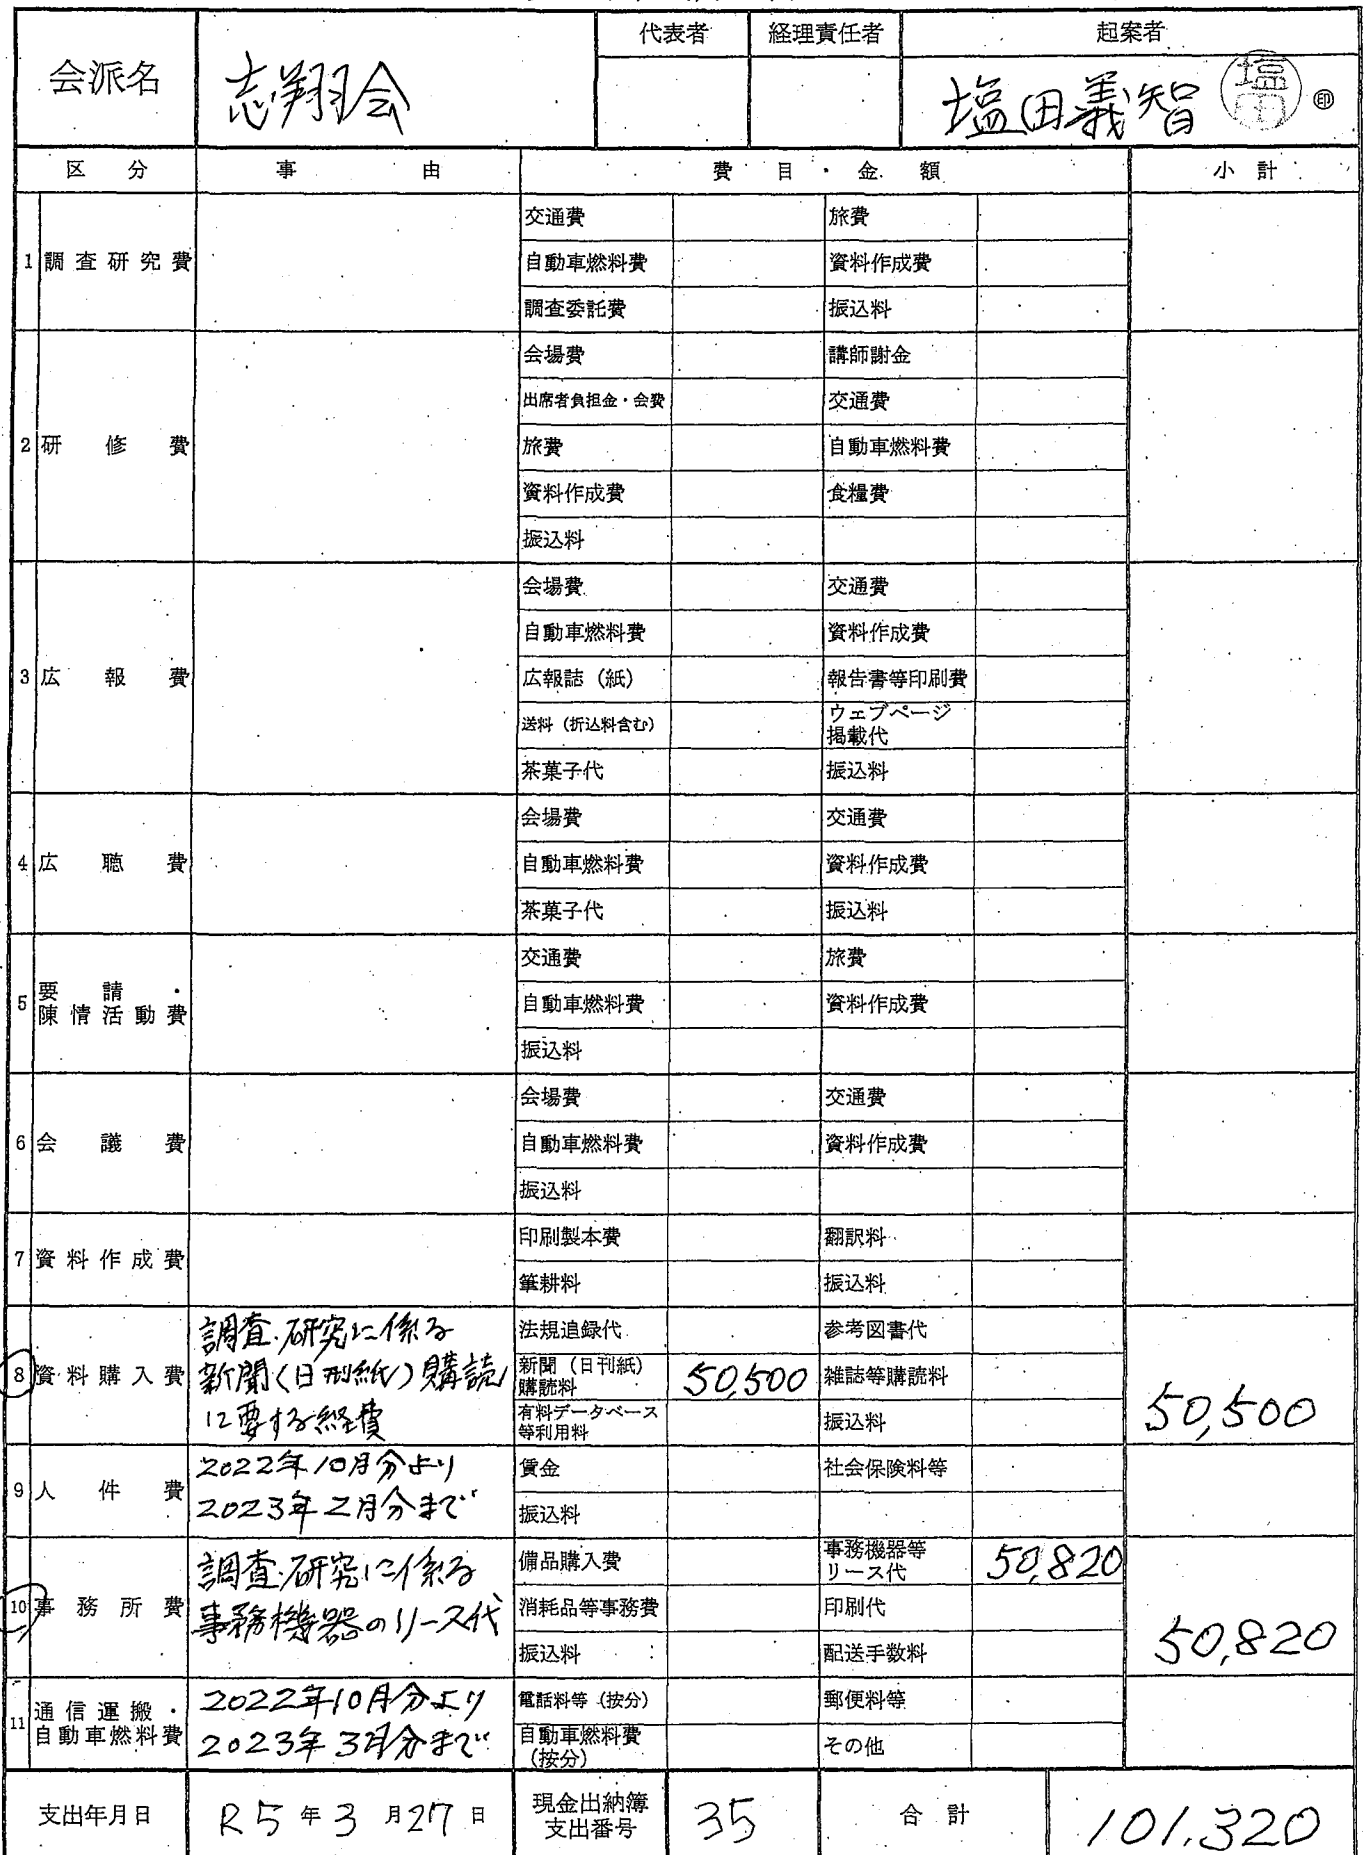 会派名 志翔会 代表者 経理責任者 起案者
塩田義智 塩田 ㊞
区分 事由 費目・金額 小計
1 調査研究費
交通費 旅費
自動車燃料費 資料作成費
調査委託費 振込料
2 研修費
会場費 講師謝金
出席者負担金・会費 交通費
旅費 自動車燃料費
資料作成費 食糧費
振込料
3 広報費
会場費 交通費
自動車燃料費 資料作成費
広報誌（紙） 報告書等印刷費
送料（折込料含む） ウェブページ
掲載代
茶菓子代 振込料
4 広聴費
会場費 交通費
自動車燃料費 資料作成費
茶菓子代 振込料
5 要請・
陳情活動費
交通費 旅費
自動車燃料費 資料作成費
振込料
6 会議費
会場費 交通費
自動車燃料費 資料作成費
振込料
7 資料作成費
印刷製本費 翻訳料
筆耕料 振込料
8 資料購入費
調査・研究に係る
新聞（日刊紙）購読
に要する経費
法規追録代 参考図書代
新聞（日刊紙）
購読料 50,500 雑誌等購読料
有料データベース
等利用料 振込料
50,500
9 人件費
2022年10月分より
2023年2月分まで
賃金 社会保険料等
振込料
10 事務所費
調査・研究に係る
事務機器のリース代
備品購入費 事務機器等
リース代 50,820
消耗品等事務費 印刷代
振込料 配送手数料
50,820
11 通信運搬・
自動車燃料費
2022年10月分より
2023年3月分まで
電話料等（按分） 郵便料等
自動車燃料費
（按分） その他
支出年月日 R5年3月27日 現金出納簿
支出番号 35 合計 101,320